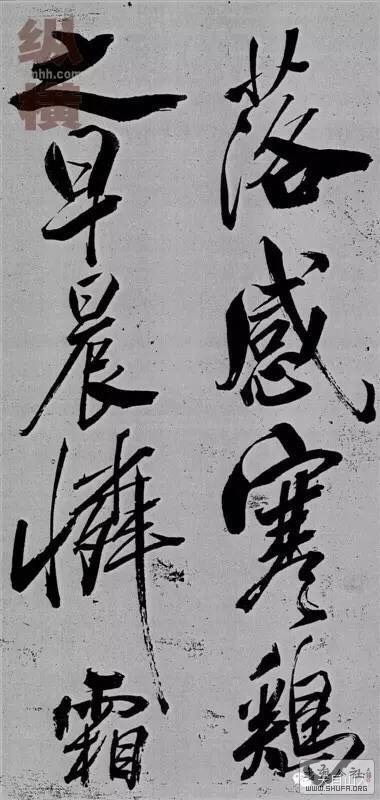 落感寒鷄
之早晨憐霜
纵横
nhh.com
WWW.SHUFA.ORG